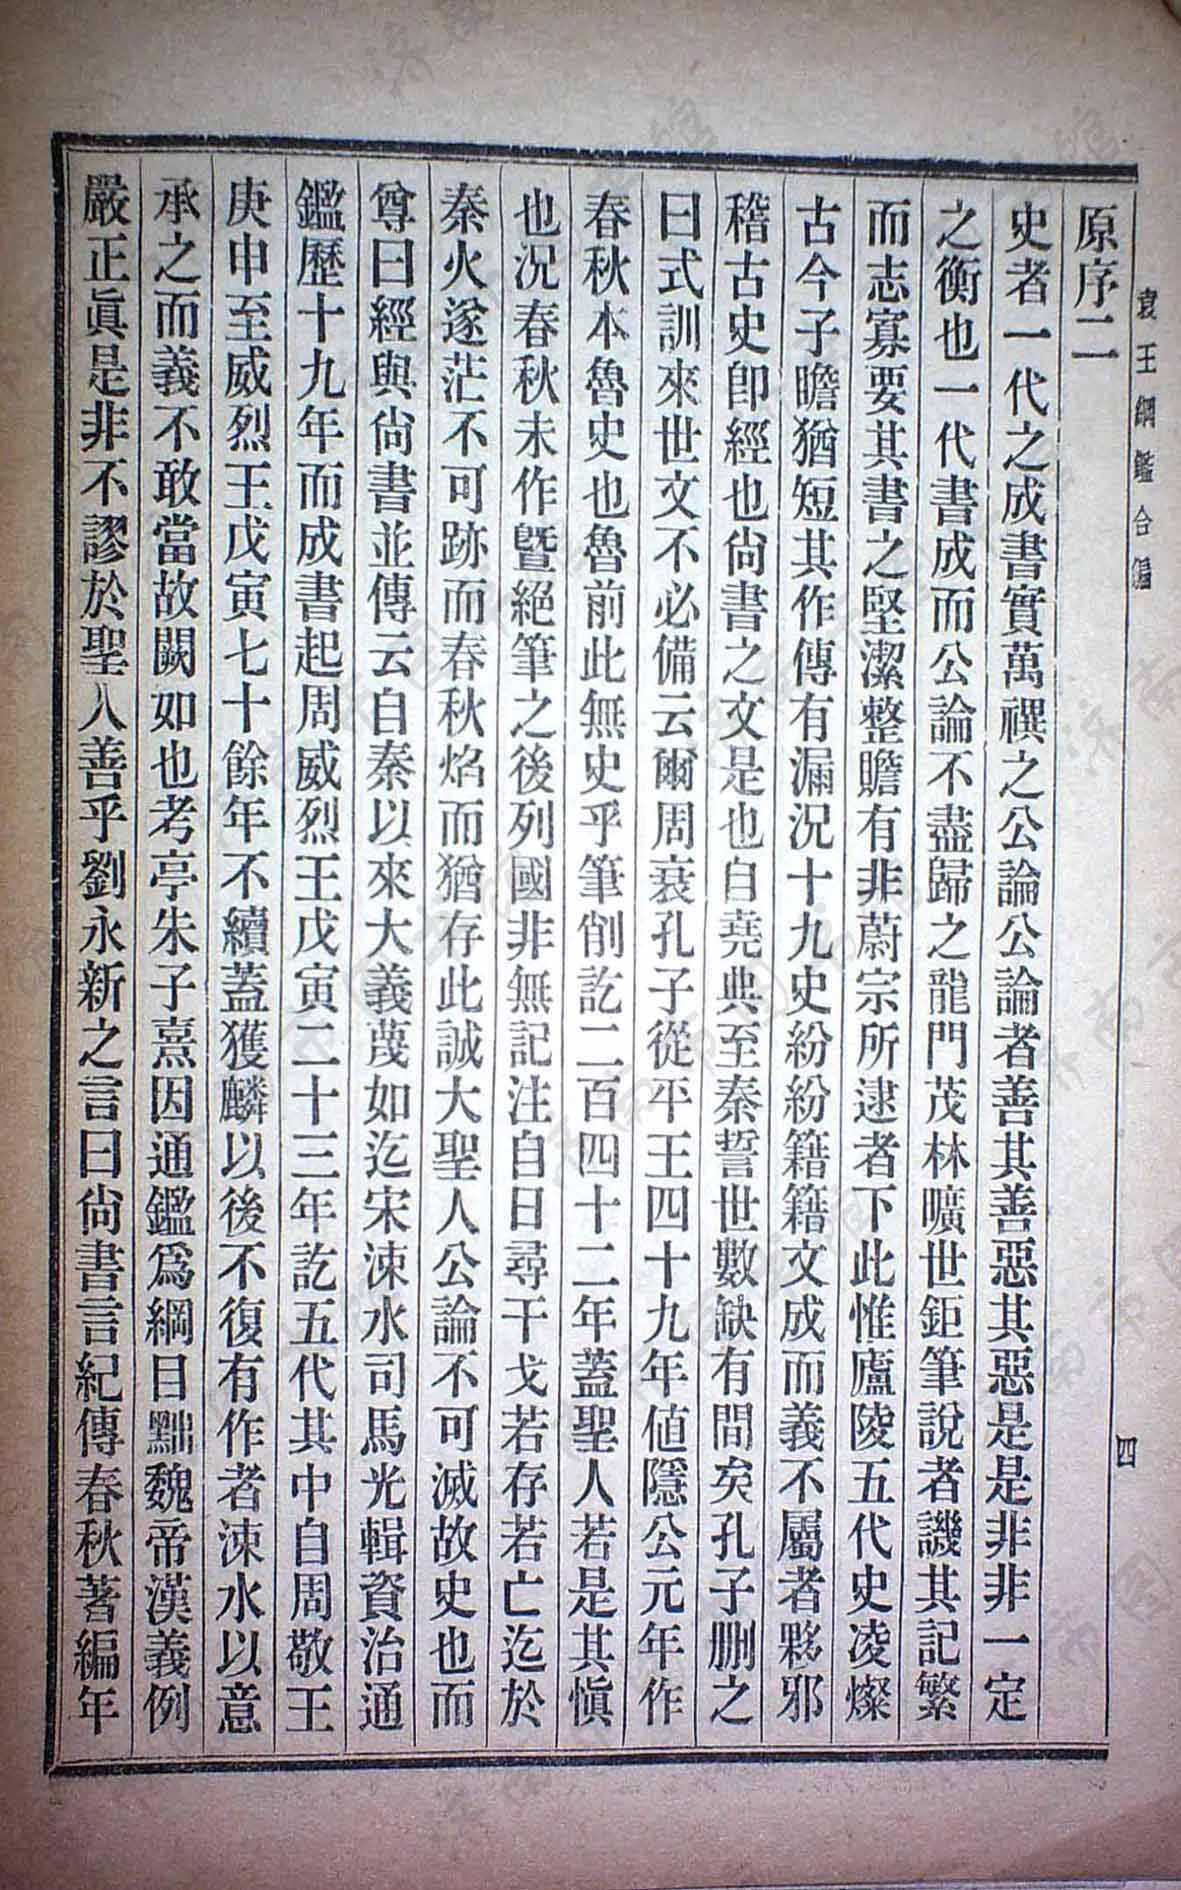 袁王綱鑑合編
四
原序二
史者一代之成書實萬禩之公論公論者善其善惡其惡是是非非一定
之衡也一代書成而公論不盡歸之龍門茂林曠世鉅筆說者譏其記繁
而志寡要其書之堅潔整贍有非蔚宗所逮者下此惟廬陵五代史凌燦
古今子瞻猶短其作傳有漏況十九史紛紛籍籍文成而義不屬者夥邪
稽古史卽經也尙書之文是也自堯典至秦誓世數缺有間矣孔子刪之
曰式訓來世文不必備云爾周衰孔子從平王四十九年値隱公元年作
春秋本魯史也魯前此無史乎筆削訖二百四十二年蓋聖人若是其愼
也況春秋未作曁絕筆之後列國非無記注自日尋干戈若存若亡迄於
秦火遂茫不可跡而春秋焰而猶存此誠大聖人公論不可滅故史也而
尊曰經與尙書並傳云自秦以來大義蔑如迄宋涑水司馬光輯資治通
鑑歷十九年而成書起周威烈王戊寅二十三年訖五代其中自周敬王
庚申至威烈王戊寅七十餘年不續蓋獲麟以後不復有作者涑水以意
承之而義不敢當故闕如也考亭朱子熹因通鑑爲綱目黜魏帝漢義例
嚴正眞是非不謬於聖人善乎劉永新之言曰尙書言紀傳春秋著編年